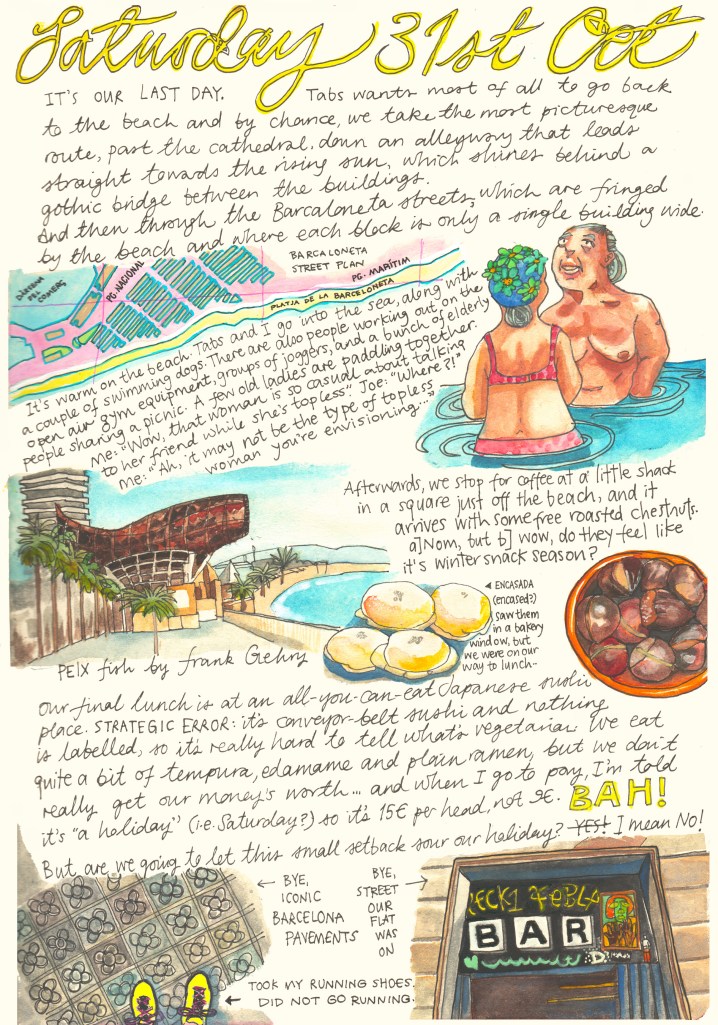 Saturday 31st Oct
IT'S OUR LAST DAY. Tabs wants most of all to go back
to the beach and by chance, we take the most picturesque
route, past the cathedral, down an alleyway that leads
straight towards the rising sun, which shines behind a
gothic bridge between the buildings.
And then through the Barcaloneta streets, which are fringed
by the beach and where each block is only a single building wide.
BARCALONETA
STREET PLAN
PG. NACIONAL
PG. MARÍTIM
PLATJA DE LA BARCELONETA
It's warm on the beach. Tabs and I go into the sea, along with
a couple of swimming dogs. There are also people working out on the
open air gym equipment, groups of joggers, and a bunch of elderly
people sharing a picnic. A few old ladies are paddling together.
Me: "Wow, that woman is so casual about talking
to her friend while she's topless." Joe: "Where?!"
Me: "Ah, it may not be the type of topless
woman you're envisioning..."
Afterwards, we stop for coffee at a little shack
in a square just off the beach, and it
arrives with some free roasted chestnuts.
a] Nom, but b] wow, do they feel like
it's winter snack season?
ENCASADA
(encased?)
saw them
in a bakery
window, but
we were on our
way to lunch--
PEIX fish by Frank Gehry
Our final lunch is at an all-you-can-eat Japanese sushi
place. STRATEGIC ERROR: it's conveyor-belt sushi and nothing
is labelled, so it's really hard to tell what's vegetarian. We eat
quite a bit of tempura, edamame and plain ramen, but we don't
really get our money's worth... and when I go to pay, I'm told
it's "a holiday" (i.e. Saturday?) so it's 15€ per head, not 9€. BAH!
But are we going to let this small setback sour our holiday? YES! I mean No!
← BYE,
ICONIC
BARCELONA
PAVEMENTS
BYE, →
STREET
OUR
FLAT
WAS
ON
BAR
TOOK MY RUNNING SHOES.
← DID NOT GO RUNNING.